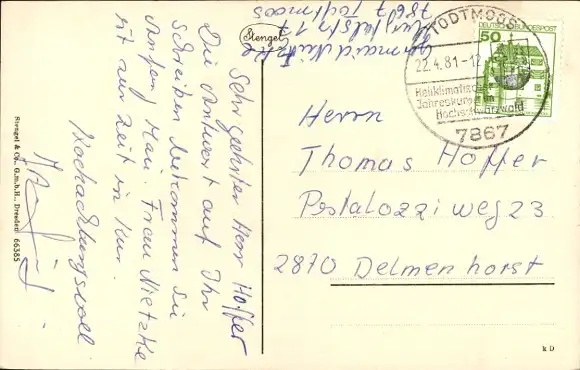 Sehr geehrter Herr Hoffer
Die Antwort auf Ihr
Schreiben bekommen Sie
Anfang Mai. Frau Nietzke
ist zur Zeit in Kur.
Hochachtungsvoll
Stengel & Co., G.m.b.H., Dresden 66385
Stengel
7867 Todtmoos
TODTMOOS
22.4.81-12
Heilklimatischer
Jahreskurort im
Hochschwarzwald
7867
DEUTSCHE BUNDESPOST
50
Herrn
Thomas Hoffer
Pestalozziweg 23
2870 Delmenhorst
k D